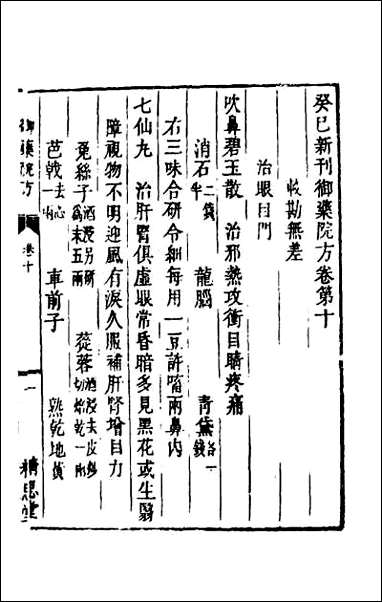 癸巳新刊御藥院方卷第十
校勘無差
治眼目門
吹鼻碧玉散 治邪熱攻衝目睛疼痛
消石二錢半 龍腦 青黛各一錢
右三味合研令細每用一豆許㗜兩鼻內
七仙丸 治肝腎俱虛眼常昏暗多見黑花或生翳
障視物不明迎風有淚久服補肝腎增目力
兔絲子酒浸另研為末五兩 蓯蓉酒浸去皮切焙乾一兩
芭戟去心一兩 車前子 熟乾地黃
御藥院方 卷十 一 精思堂